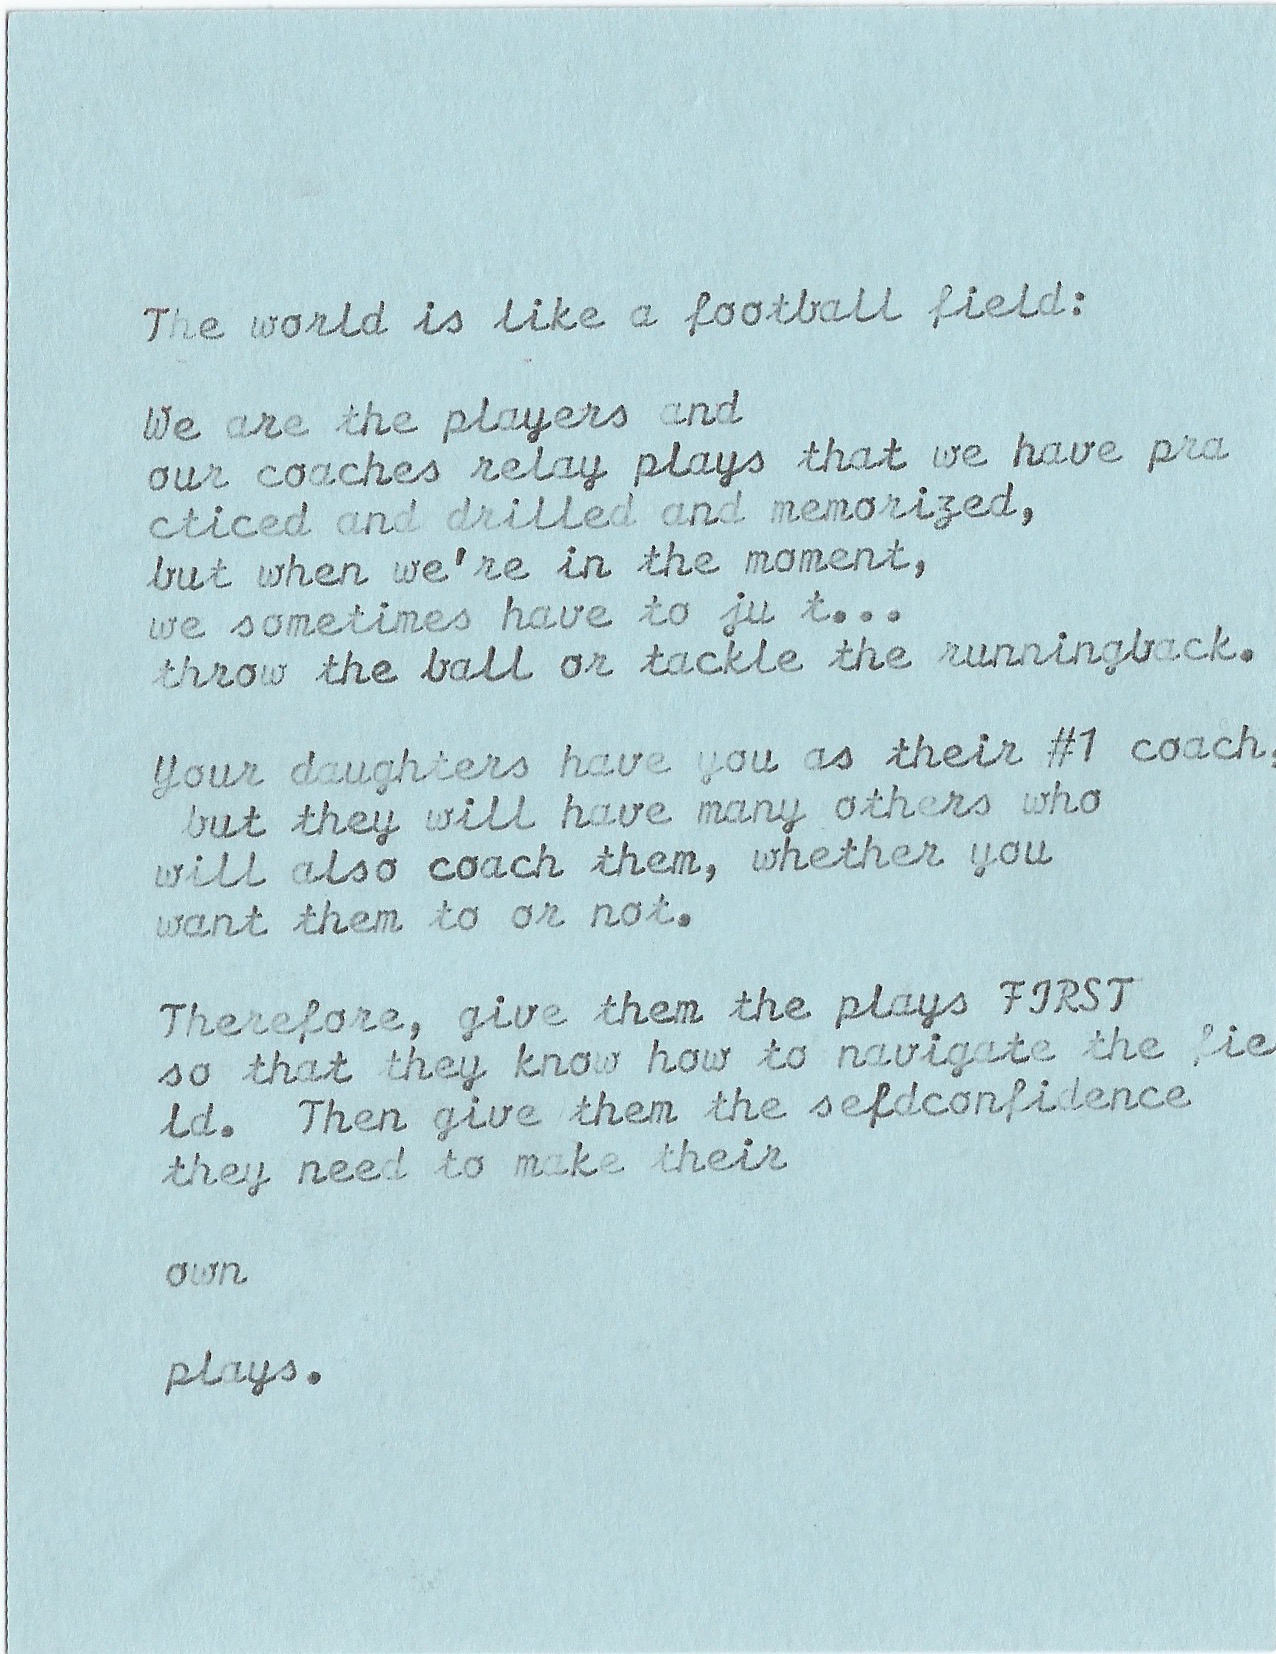 The world is like a football field:
We are the players and
our coaches relay plays that we have pra
cticed and drilled and memorized,
but when we're in the moment,
we sometimes have to ju t...
throw the ball or tackle the runningback.
Your daughters have you as their #1 coach,
but they will have many others who
will also coach them, whether you
want them to or not.
Therefore, give them the plays FIRST
so that they know how to navigate the fie
ld. Then give them the sefdconfidence
they need to make their
own
plays.